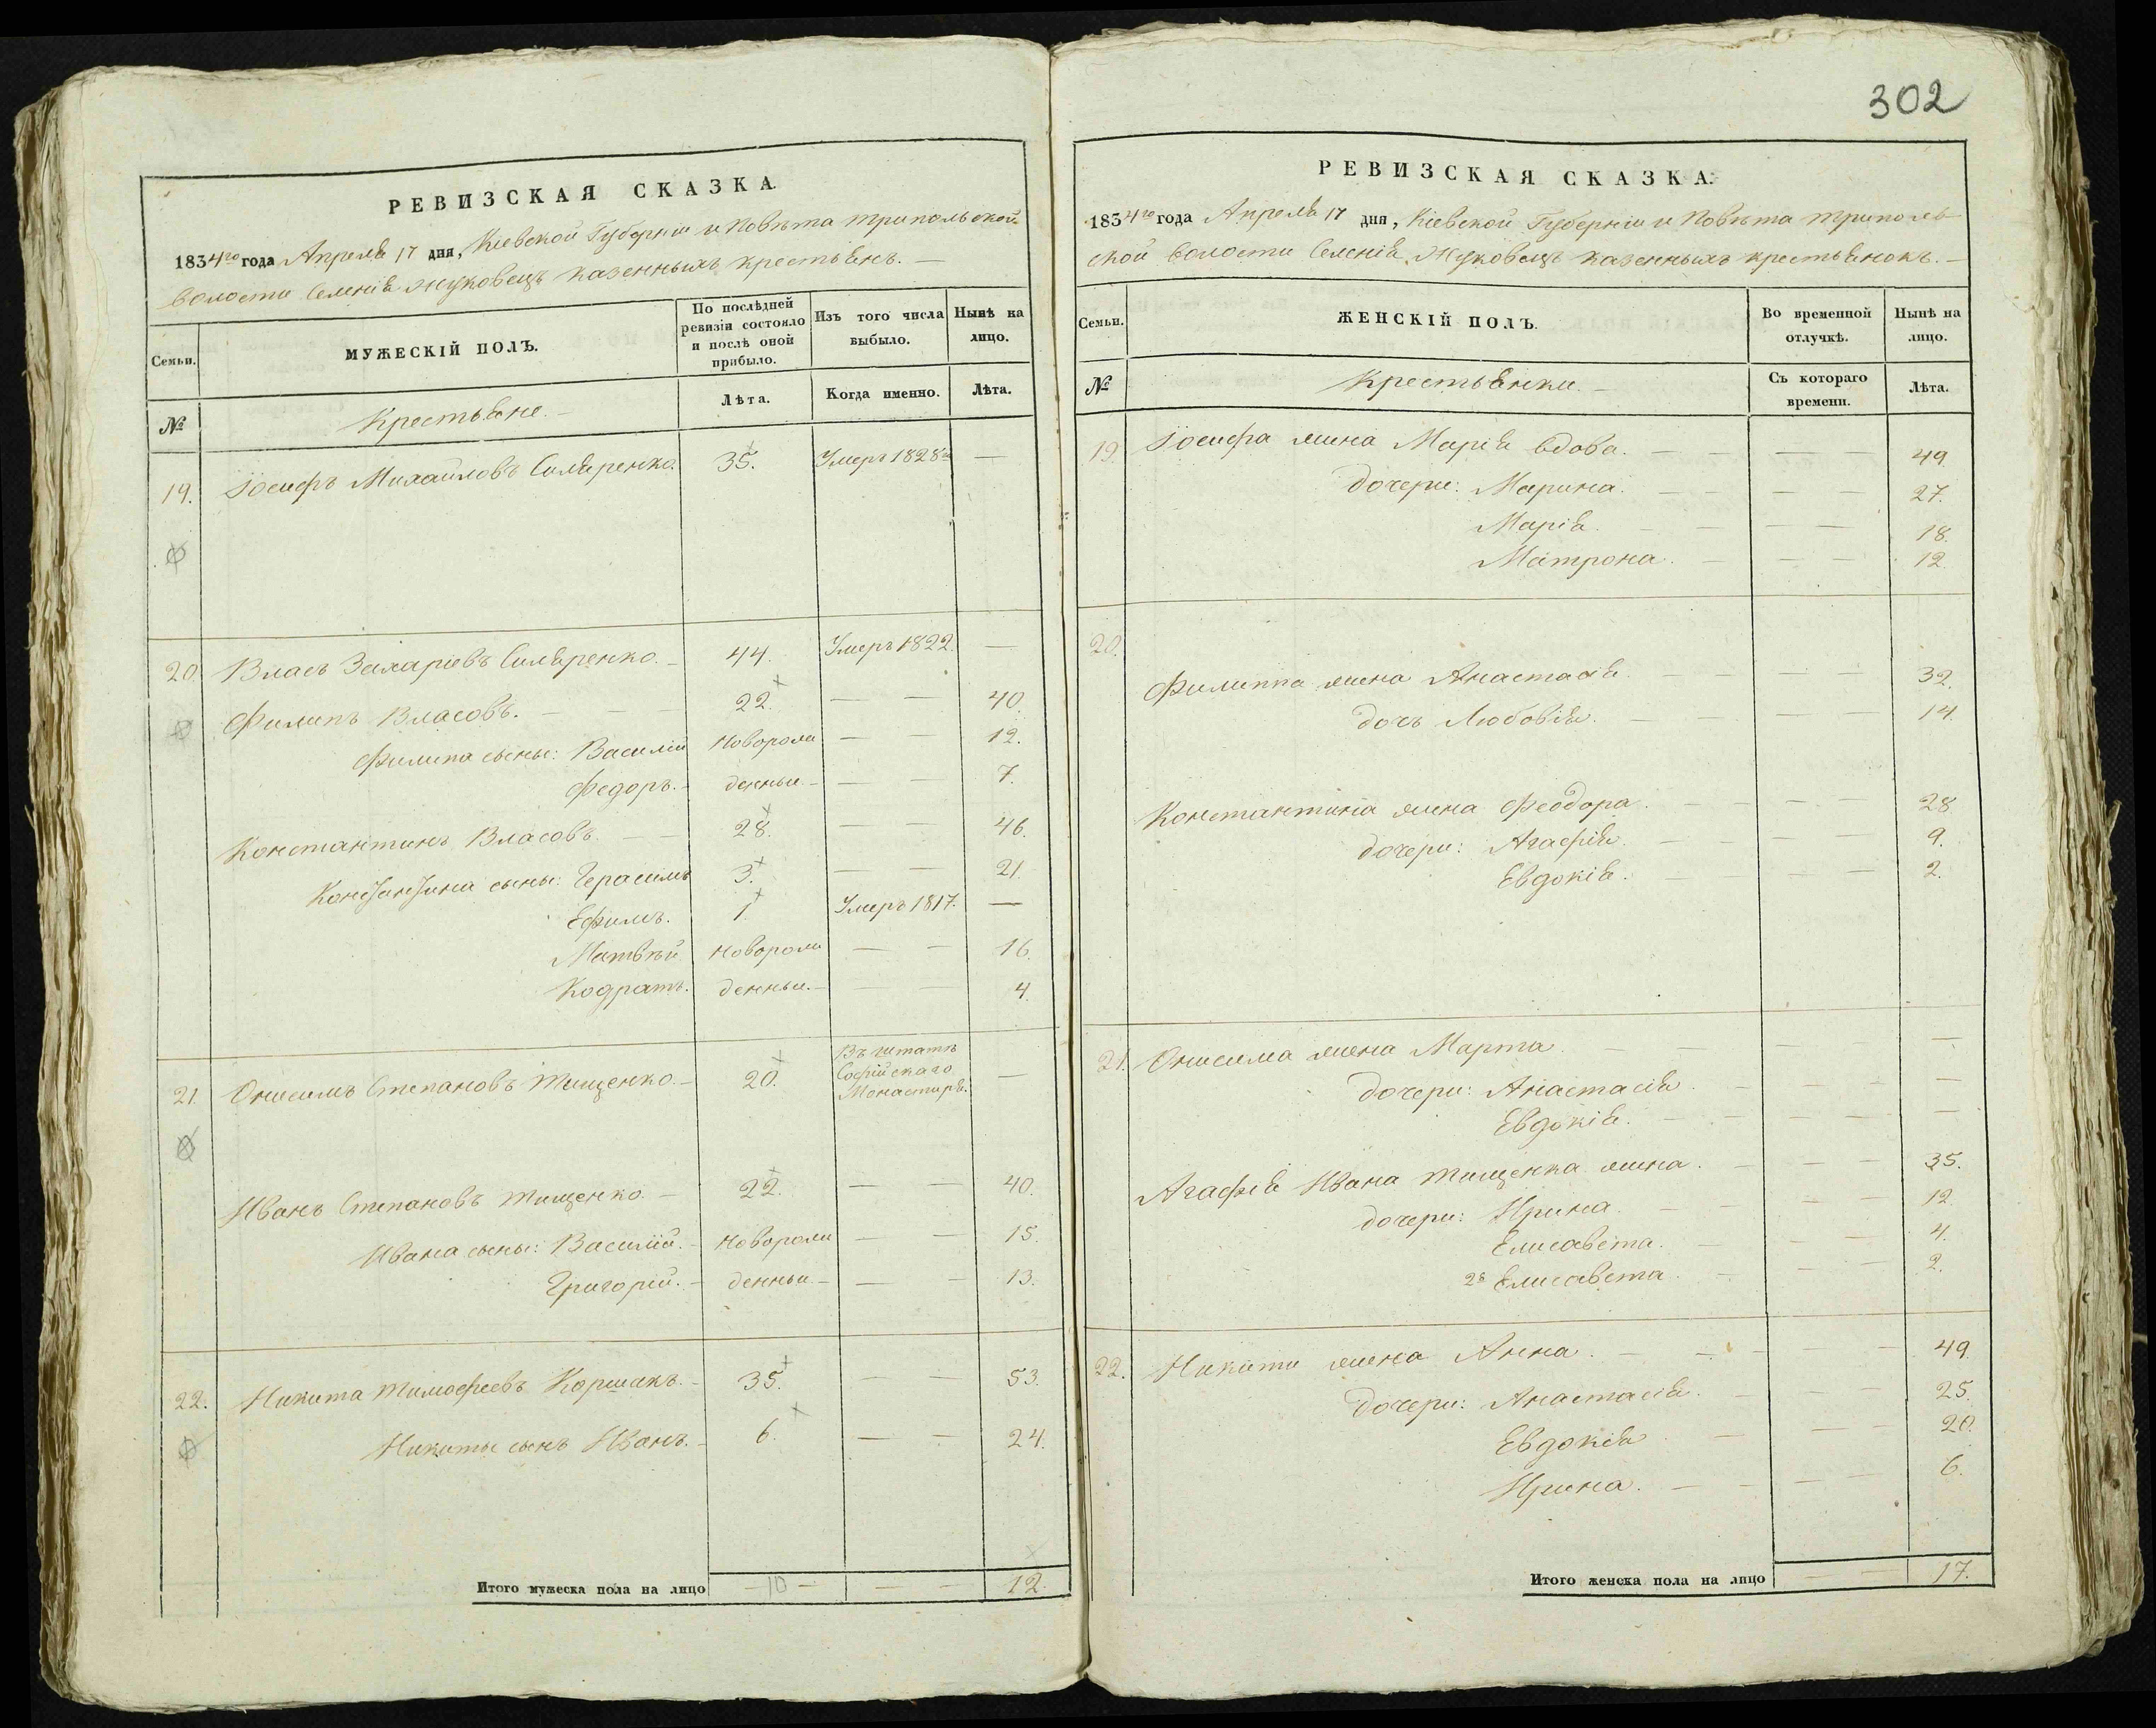 302
РЕВИЗСКАЯ СКАЗКА.
1834го года Апреля 17 дня, Кіевской Губерніи и Повѣта Трипольской
волости Селенія Жуковецъ казенныхъ крестьянъ.
Семьи.
МУЖЕСКІЙ ПОЛЪ.
По послѣдней ревизіи состояло и послѣ оной прибыло.
Изъ того числа выбыло.
Нынѣ на лицо.
№
Крестьяне.
Лѣта.
Когда именно.
Лѣта.
19. Іосифъ Михайловъ Скляренко. 35. Умеръ 1828го —
20. Власъ Захаріевъ Скляренко. — 44. Умеръ 1822. —
Филипъ Власовъ. — — 22. — — 40.
Филипа сыны: Василій Новорож — — 12.
Федоръ. — денныи — — — 7.
Константинъ Власовъ. — — 28. — — 46.
Константина сыны: Герасимъ 3. — — 21.
Ефимъ. 1. Умеръ 1817. —
Матвѣй Новорож — — 16.
Кодратъ. денныи. — — — 4.
21. Онисимъ Степановъ Тищенко. — 20. Въ штатѣ Софійскаго Монастыря. —
Иванъ Степановъ Тищенко. — 22. — — 40.
Ивана сыны: Василій. — Новорож — — 15.
Григорій. — денныи — — — 13.
22. Никита Тимофеевъ Коршакъ. — 35. — — 53.
Никиты сынъ Иванъ. — 6. — — 24.
Итого мужеска пола на лицо — 10 — — — 12.
РЕВИЗСКАЯ СКАЗКА.
1834го года Апреля 17 дня, Кіевской Губерніи и Повѣта Триполь
ской волости Селенія Жуковецъ казенныхъ крестьянокъ. —
Семьи.
ЖЕНСКІЙ ПОЛЪ.
Во временной отлучкѣ.
Нынѣ на лицо.
№
Крестьянки. —
Съ котораго времени.
Лѣта.
19. Іосифа жена Марія вдова. — — — — 49.
дочери: Марина. — — — — 27.
Марія. — — — — 18.
Матрона. — — — 12.
20.
Филиппа жена Анастасія. — — — — 32.
дочь Любовія. — — — — 14.
Константина жена Феодора. — — — — 28.
дочери: Агафія. — — — — 9.
Евдокія. — — — — 2.
21. Онисима жена Марта. — — — —
дочери: Анастасія. — — — —
Евдокія. — — — — —
Агафія Ивана Тищенка жена. — — — 35.
дочери: Ирина. — — — — 12.
Елисавета. — — — 4.
2я Елисавета. — — — 2.
22. Никити жена Анна. — — — — 49.
дочери: Анастасія. — — — 25.
Евдокія. — — — 20.
Ирина. — — — — 6.
Итого женска пола на лицо — — 17.